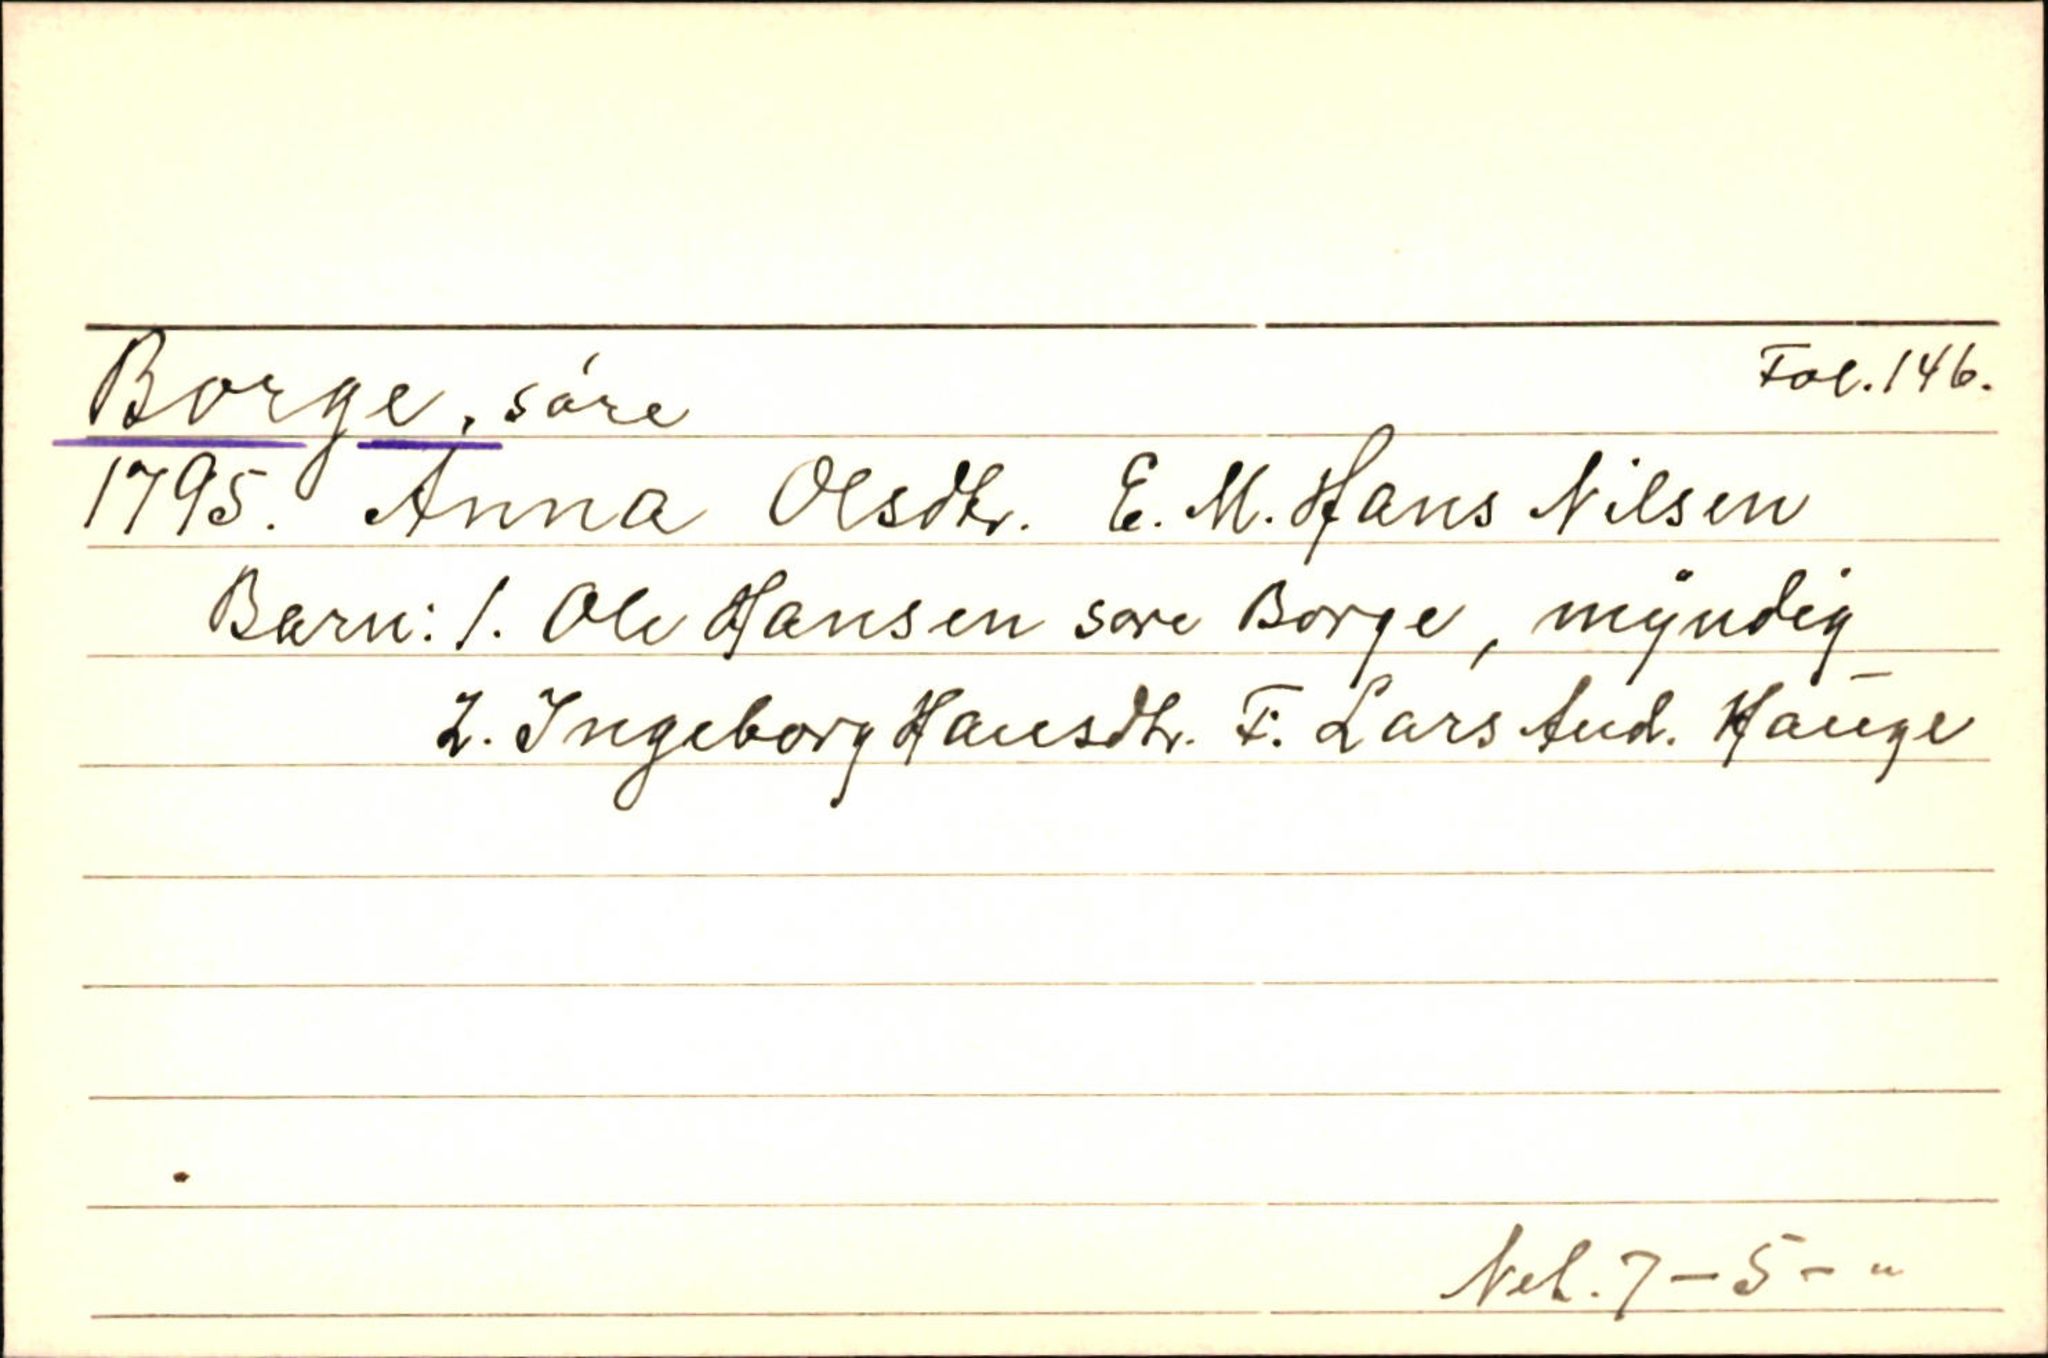 Borge, søre Fol. 146.
1795. Anna Olsdtr. E. M. Hans Nilsen
Barn: 1. Ole Hansen søre Borge, myndig
2. Ingeborg Hansdtr. F: Lars And. Hauge
Net. 7 - 5 - "